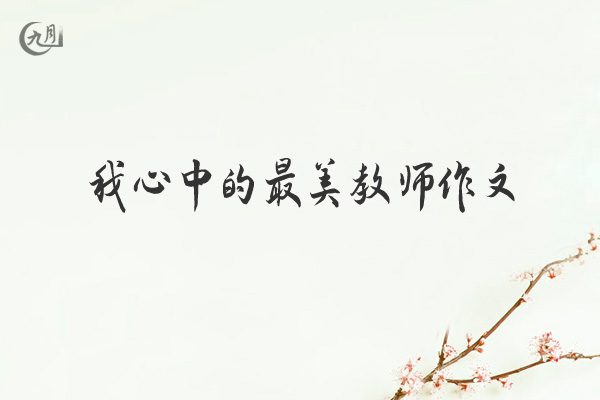 九月
我心中的最美教师作文